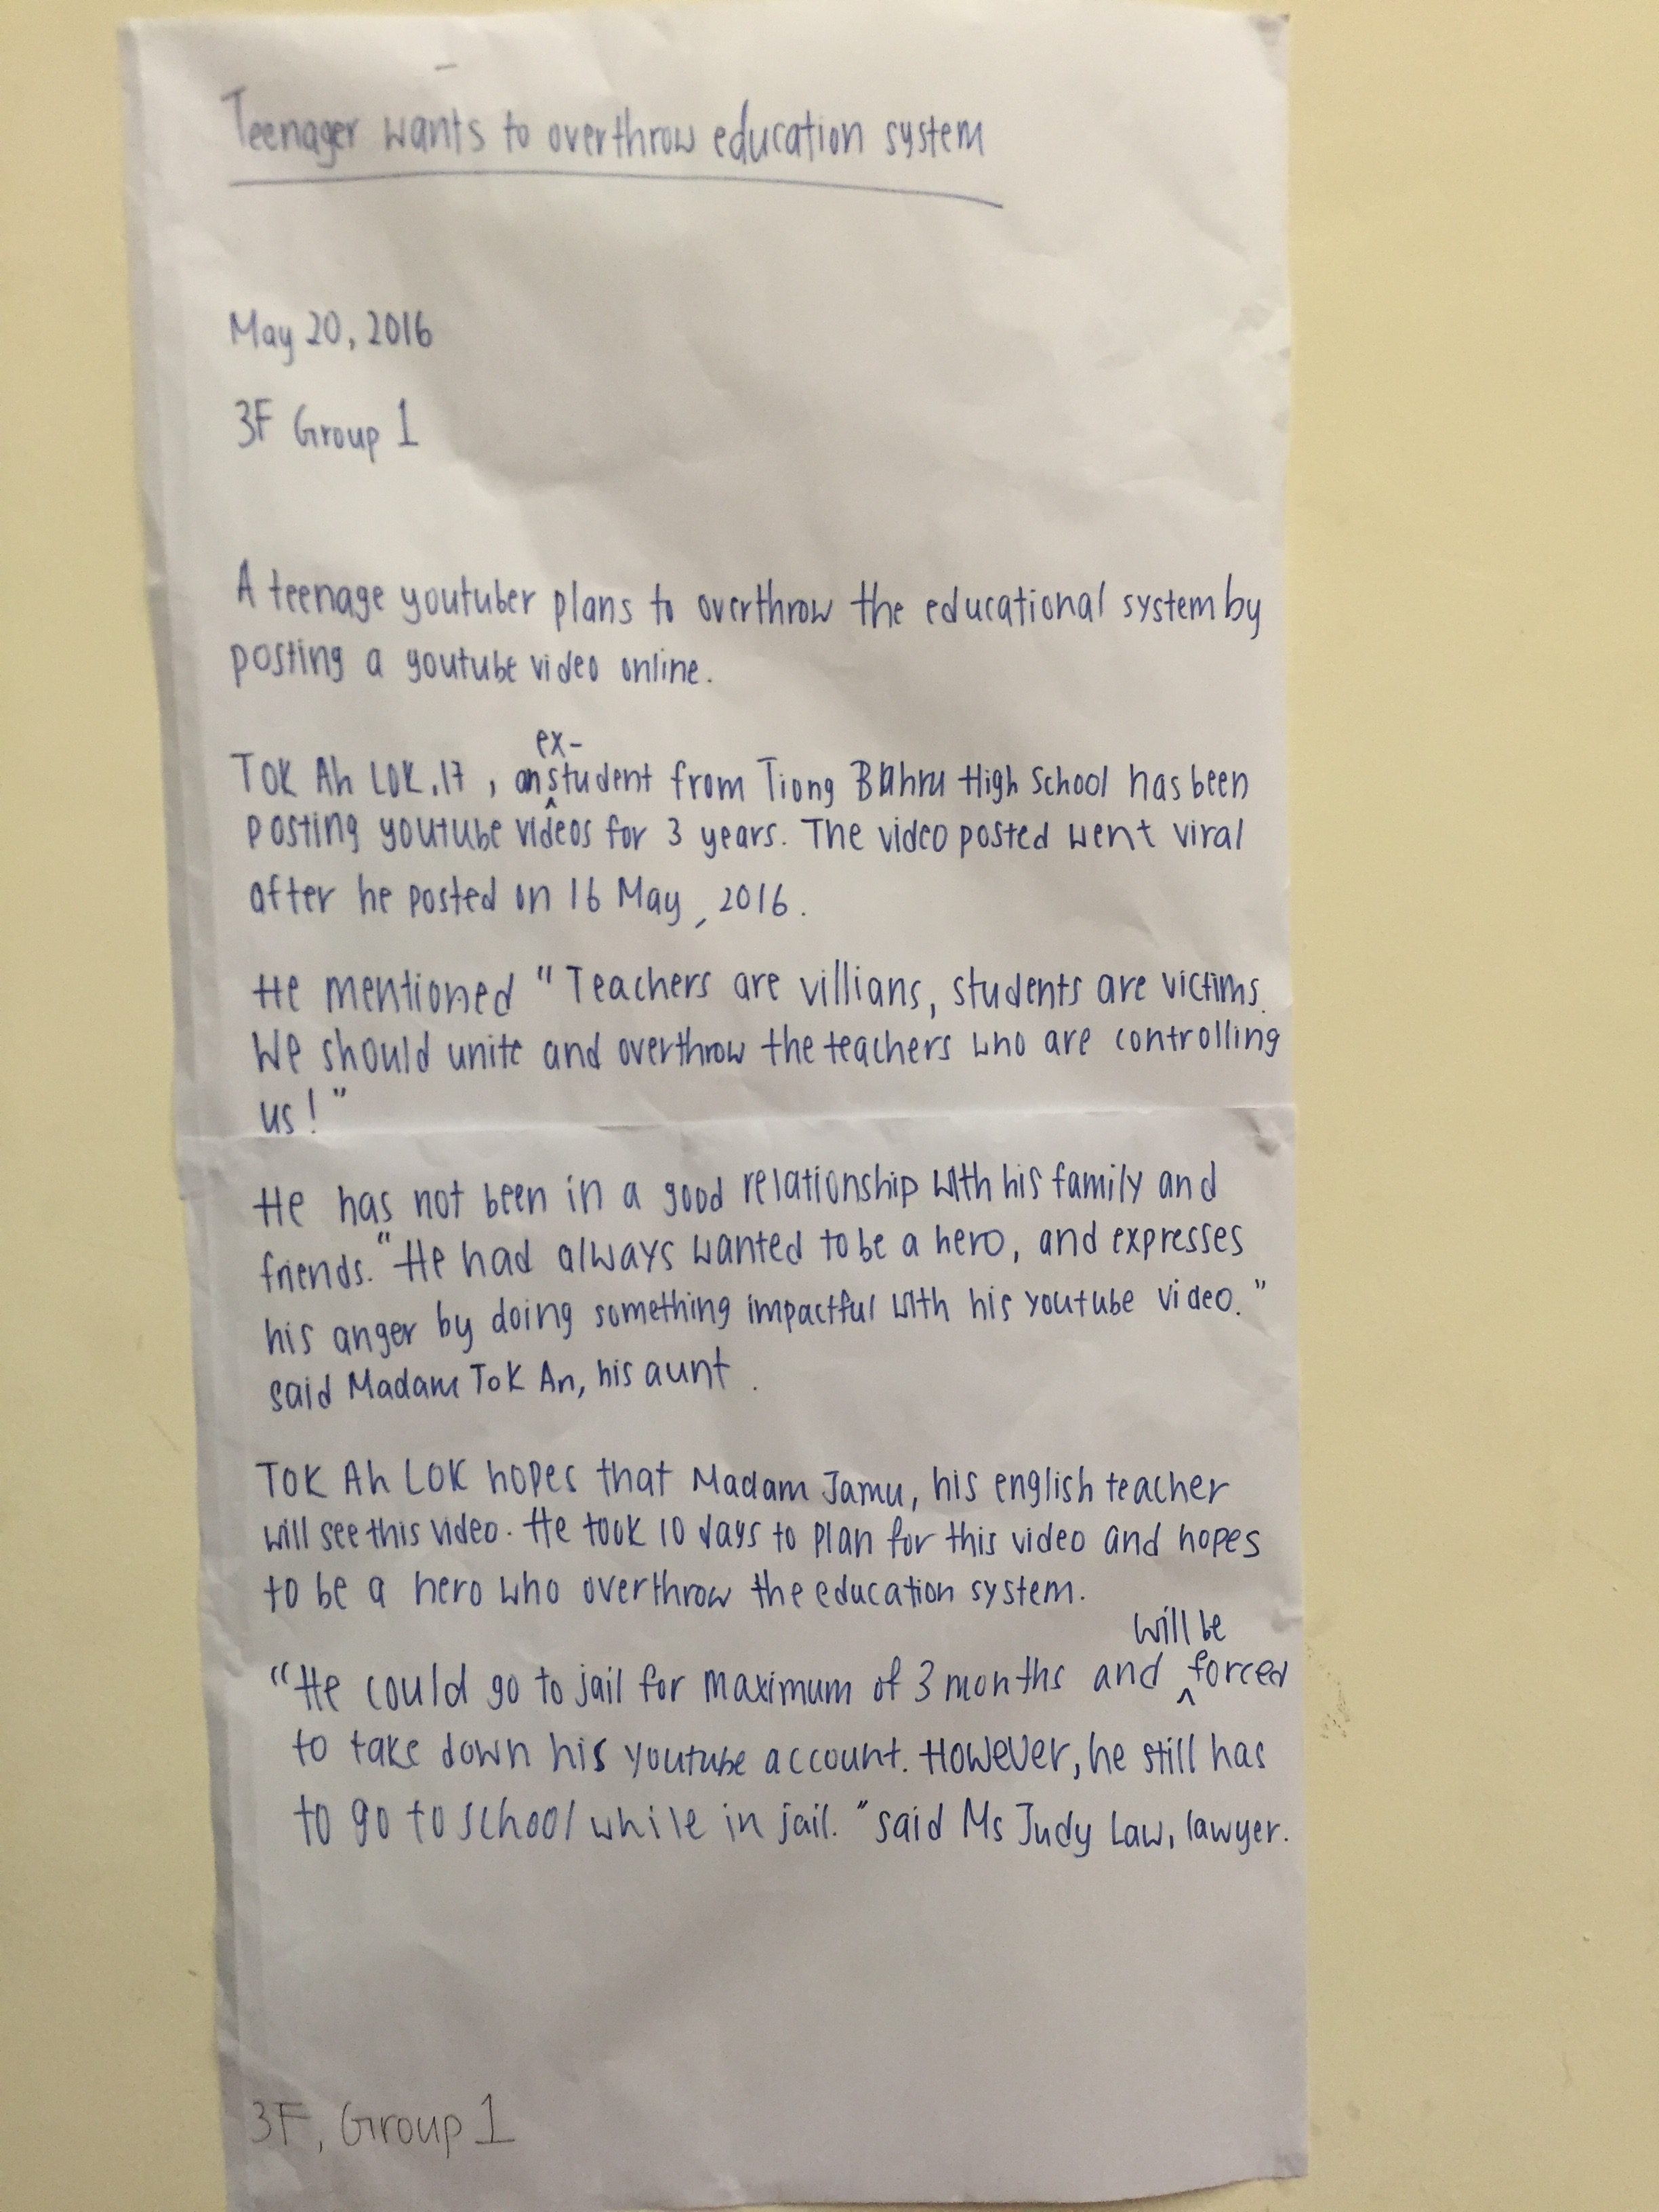 Teenager wants to overthrow education system
May 20, 2016
3F Group 1
A teenage youtuber plans to overthrow the educational system by
posting a youtube video online.
Tok Ah Lok, 17, an ex-student from Tiong Bahru High School has been
posting youtube videos for 3 years. The video posted went viral
after he posted on 16 May, 2016.
He mentioned "Teachers are villians, students are victims.
We should unite and overthrow the teachers who are controlling
us!"
He has not been in a good relationship with his family and
friends. "He had always wanted to be a hero, and expresses
his anger by doing something impactful with his youtube video."
said Madam Tok An, his aunt.
Tok Ah Lok hopes that Madam Jamu, his english teacher
will see this video. He took 10 days to plan for this video and hopes
to be a hero who overthrow the education system.
"He could go to jail for maximum of 3 months and will be forced
to take down his youtube account. However, he still has
to go to school while in jail." said Ms Judy Law, lawyer.
3F, Group 1